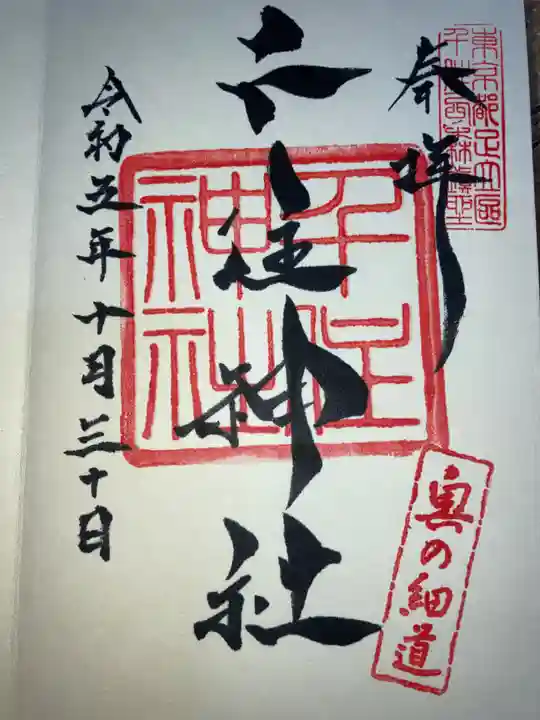 東京都足立區
千住西森鎮护
奉拝
千住神社
千住神社
奥の細道
令和五年十月三十日